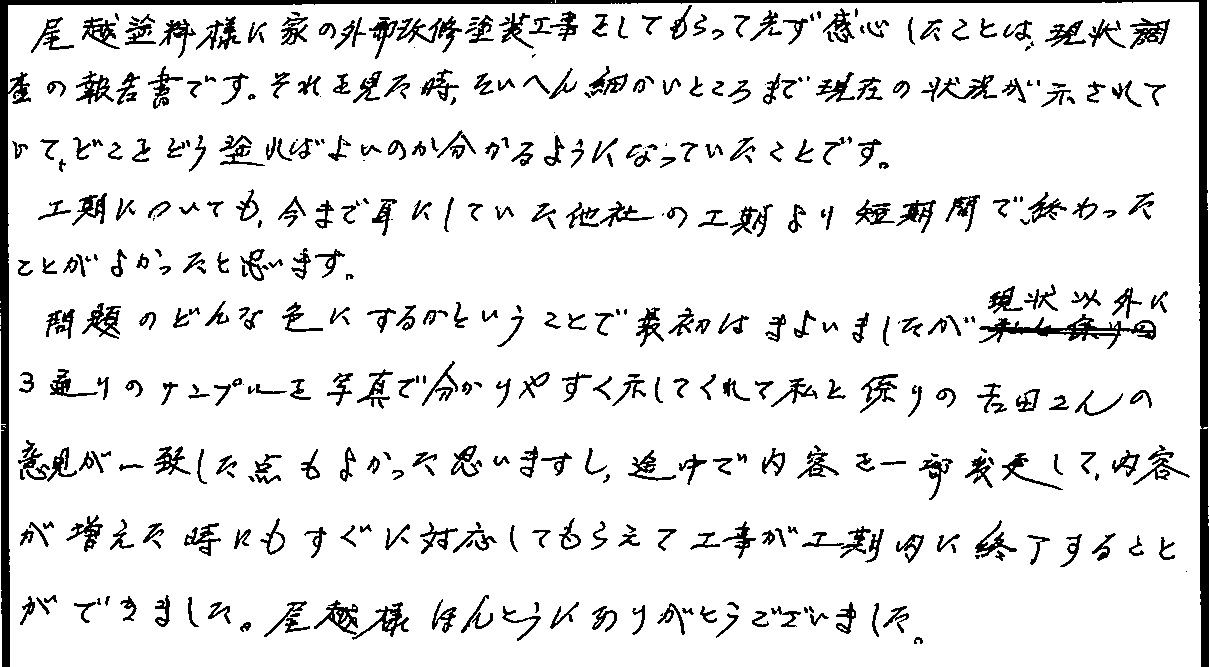 尾越塗料様に家の外部改修塗装工事をしてもらって先ず感心したことは、現状調
査の報告書です。それを見た時、たいへん細かいところまで現在の状況が示されて
いて、どこをどう塗ればよいのか分かるようになっていたことです。
工期についても、今まで耳にしていた他社の工期より短期間で終わった
ことがよかったと思います。
問題のどんな色にするかということで最初はまよいましたが現状以外に
3通りのサンプルを写真で分かりやすく示してくれて私と係りの吉田さんの
意見が一致した点もよかった思いますし、途中で内容を一部変更して、内容
が増えた時にもすぐに対応してもらえて工事が工期内に終了すること
ができました。尾越様ほんとうにありがとうございました。